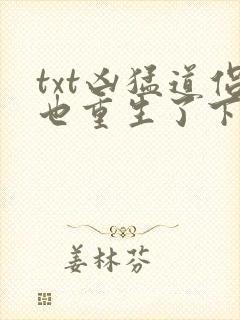 txt凶猛道侣
也重生了下
姜林芬